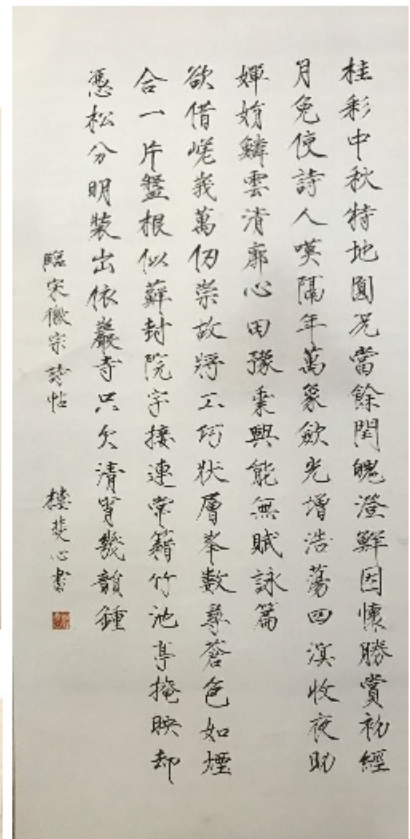 桂彩中秋特地圓況當餘閏魄澄鮮因懷勝賞初經
月免使詩人嘆隔年萬象歛光增浩蕩四溟收夜助
嬋娟鱗雲清廓心田豫乘興能無賦詠篇
欲借嵯峩萬仞崇故將工巧狀層峯數尋蒼色如煙
合一片盤根似蘚封院宇接連常籍竹池亭掩映却
憑松分明裝出依巖寺只欠清宵幾韻鍾
臨宋徽宗詩帖 樓斐心書